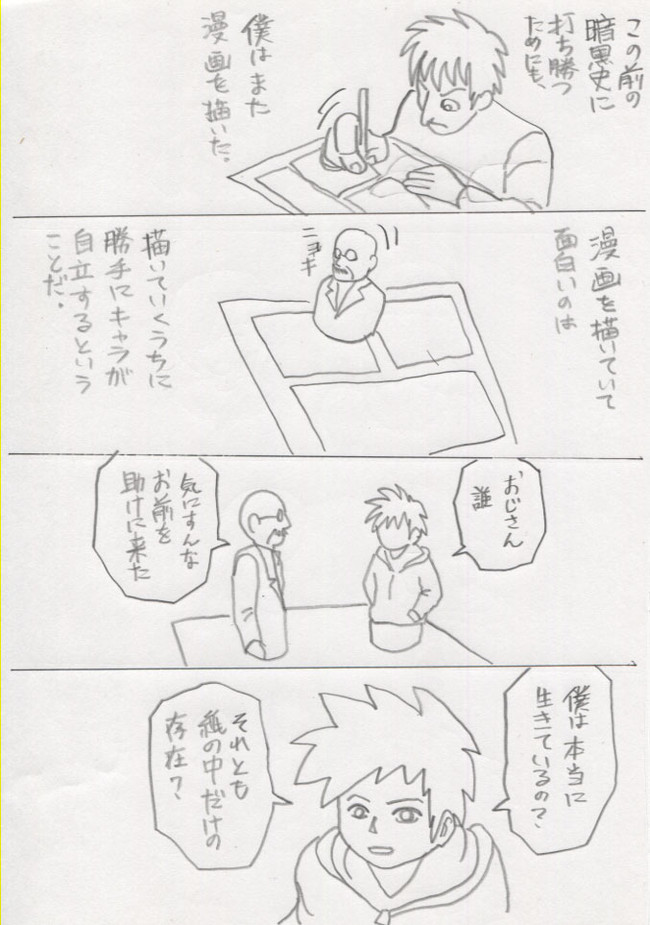 この前の
暗黒史に
打ち勝つ
ためにも、
僕はまた
漫画を描いた。
漫画を描いていて
面白いのは
ニョキ
描いていくうちに
勝手にキャラが
自立するという
ことだ。
おじさん
誰
気にすんな
お前を
助けに来た
僕は本当に
生きているの?
それとも
紙の中だけの
存在?